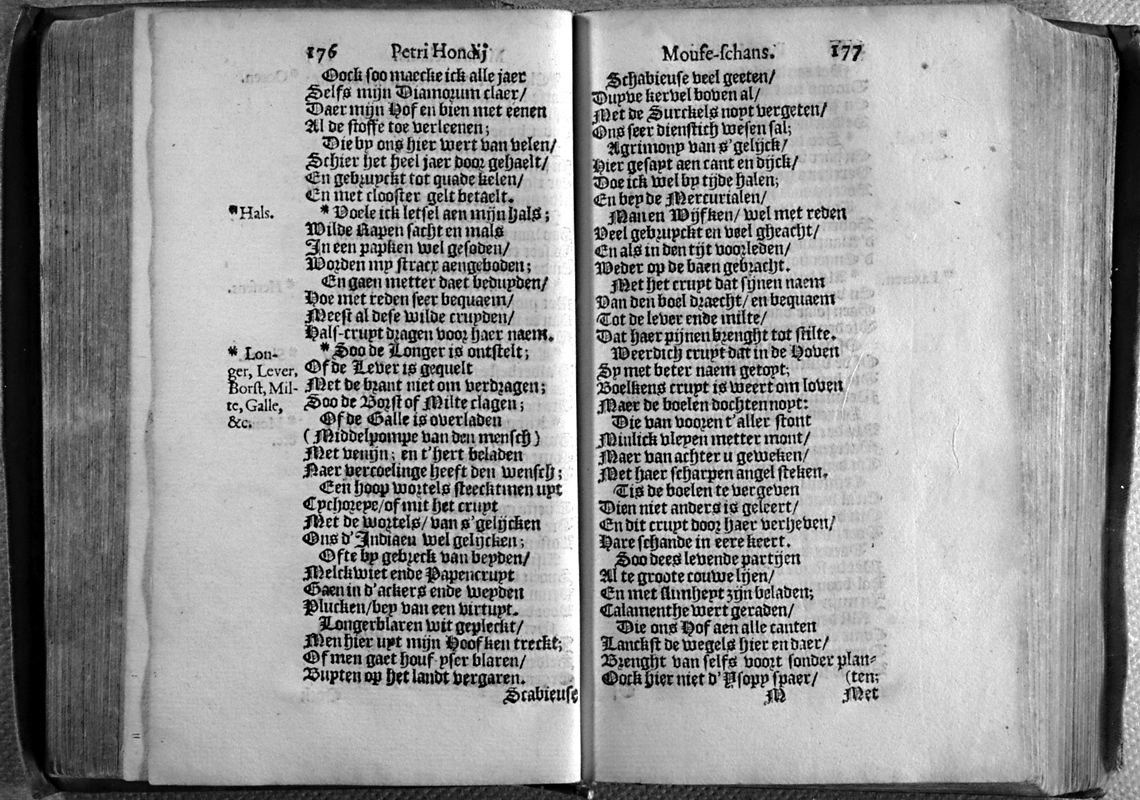 176 Petri Hondij
Oock soo maecke ick alle jaer
Selfs mijn Diamorum claer/
Daer mijn Hof en bien met eenen
Al de stoffe toe verleenen;
Die by ons hier wert van velen/
Schier het heel jaer door gehaelt/
En gebruyckt tot quade kelen/
En met clooster gelt betaelt.
*Hals.
* Voele ick letsel aen mijn hals;
Wilde Rapen sacht en mals
In een papken wel gesoden/
Worden my stracx aengeboden;
En gaen metter daet beduyden/
Hoe met reden seer bequaem/
Meest al dese wilde cruyden/
Hals-cruyt dragen voor haer naem.
* Lon-
ger, Lever,
Borst, Mil-
te, Galle,
&c.
* Soo de Longer is ontstelt;
Of de Lever is gequelt
Met de brant niet om verdragen;
Soo de Borst of Milte clagen;
Of de Galle is overladen
(Middelpompe van den mensch)
Met venijn; en t'hert beladen
Naer vercoelinge heeft den wensch;
Een hoop wortels steecktmen uyt
Cychoreye/of mit het cruyt
Met de wortels/ van s'gelijcken
Ons d'Indiaeu wel gelijcken;
Ofte by gebreck van beyden/
Melckwiet ende Papencruyt
Gaen in d'ackers ende weyden
Plucken/bey van een virtuyt.
Longerblaren wit gepleckt/
Men hier uyt mijn Hoofken treckt;
Of men gaet houf-yser blaren/
Buyten op het landt vergaren.
Scabieuse
Moufe-schans. 177
Schabieuse veel geeten/
Duyve kervel boven al/
Met de Surckels noyt vergeten/
Ons seer dienstich wesen sal;
Agrimony van s'gelijck/
Hier gesayt aen cant en dijck/
Doe ick wel by tijde halen;
En bey de Mercurialen/
Man en Wijfken/ wel met reden
Veel gebruyckt en veel gheacht/
En als in den tijt voorleden/
Weder op de baen gebracht.
Met het cruyt dat sijnen naem
Van den boel draecht/ en bequaem
Tot de lever ende milte/
Dat haer pijnen brenght tot stilte.
Weerdich cruyt dat in de Hoven
Sy met beter naem getoyt;
Boelkens cruyt is weert om loven
Maer de boelen dochten noyt:
Die van vooren t'aller stont
Minlick vleyen metter mont/
Maer van achter u geweken/
Met haer scharpen angel steken.
Tis de boelen te vergeven
Dien niet anders is geleert/
En dit cruyt door haer verheven/
Hare schande in eere keert.
Soo dees levende partijen
Al te groote couwe lijen/
En met slunheyt zijn beladen;
Calamenthe wert geraden/
Die ons Hof aen alle canten
Lanckst de wegels hier en daer/
Brenght van selfs voort sonder plan-
Oock hier niet d'Ysopy spaer/ (ten;
M Met